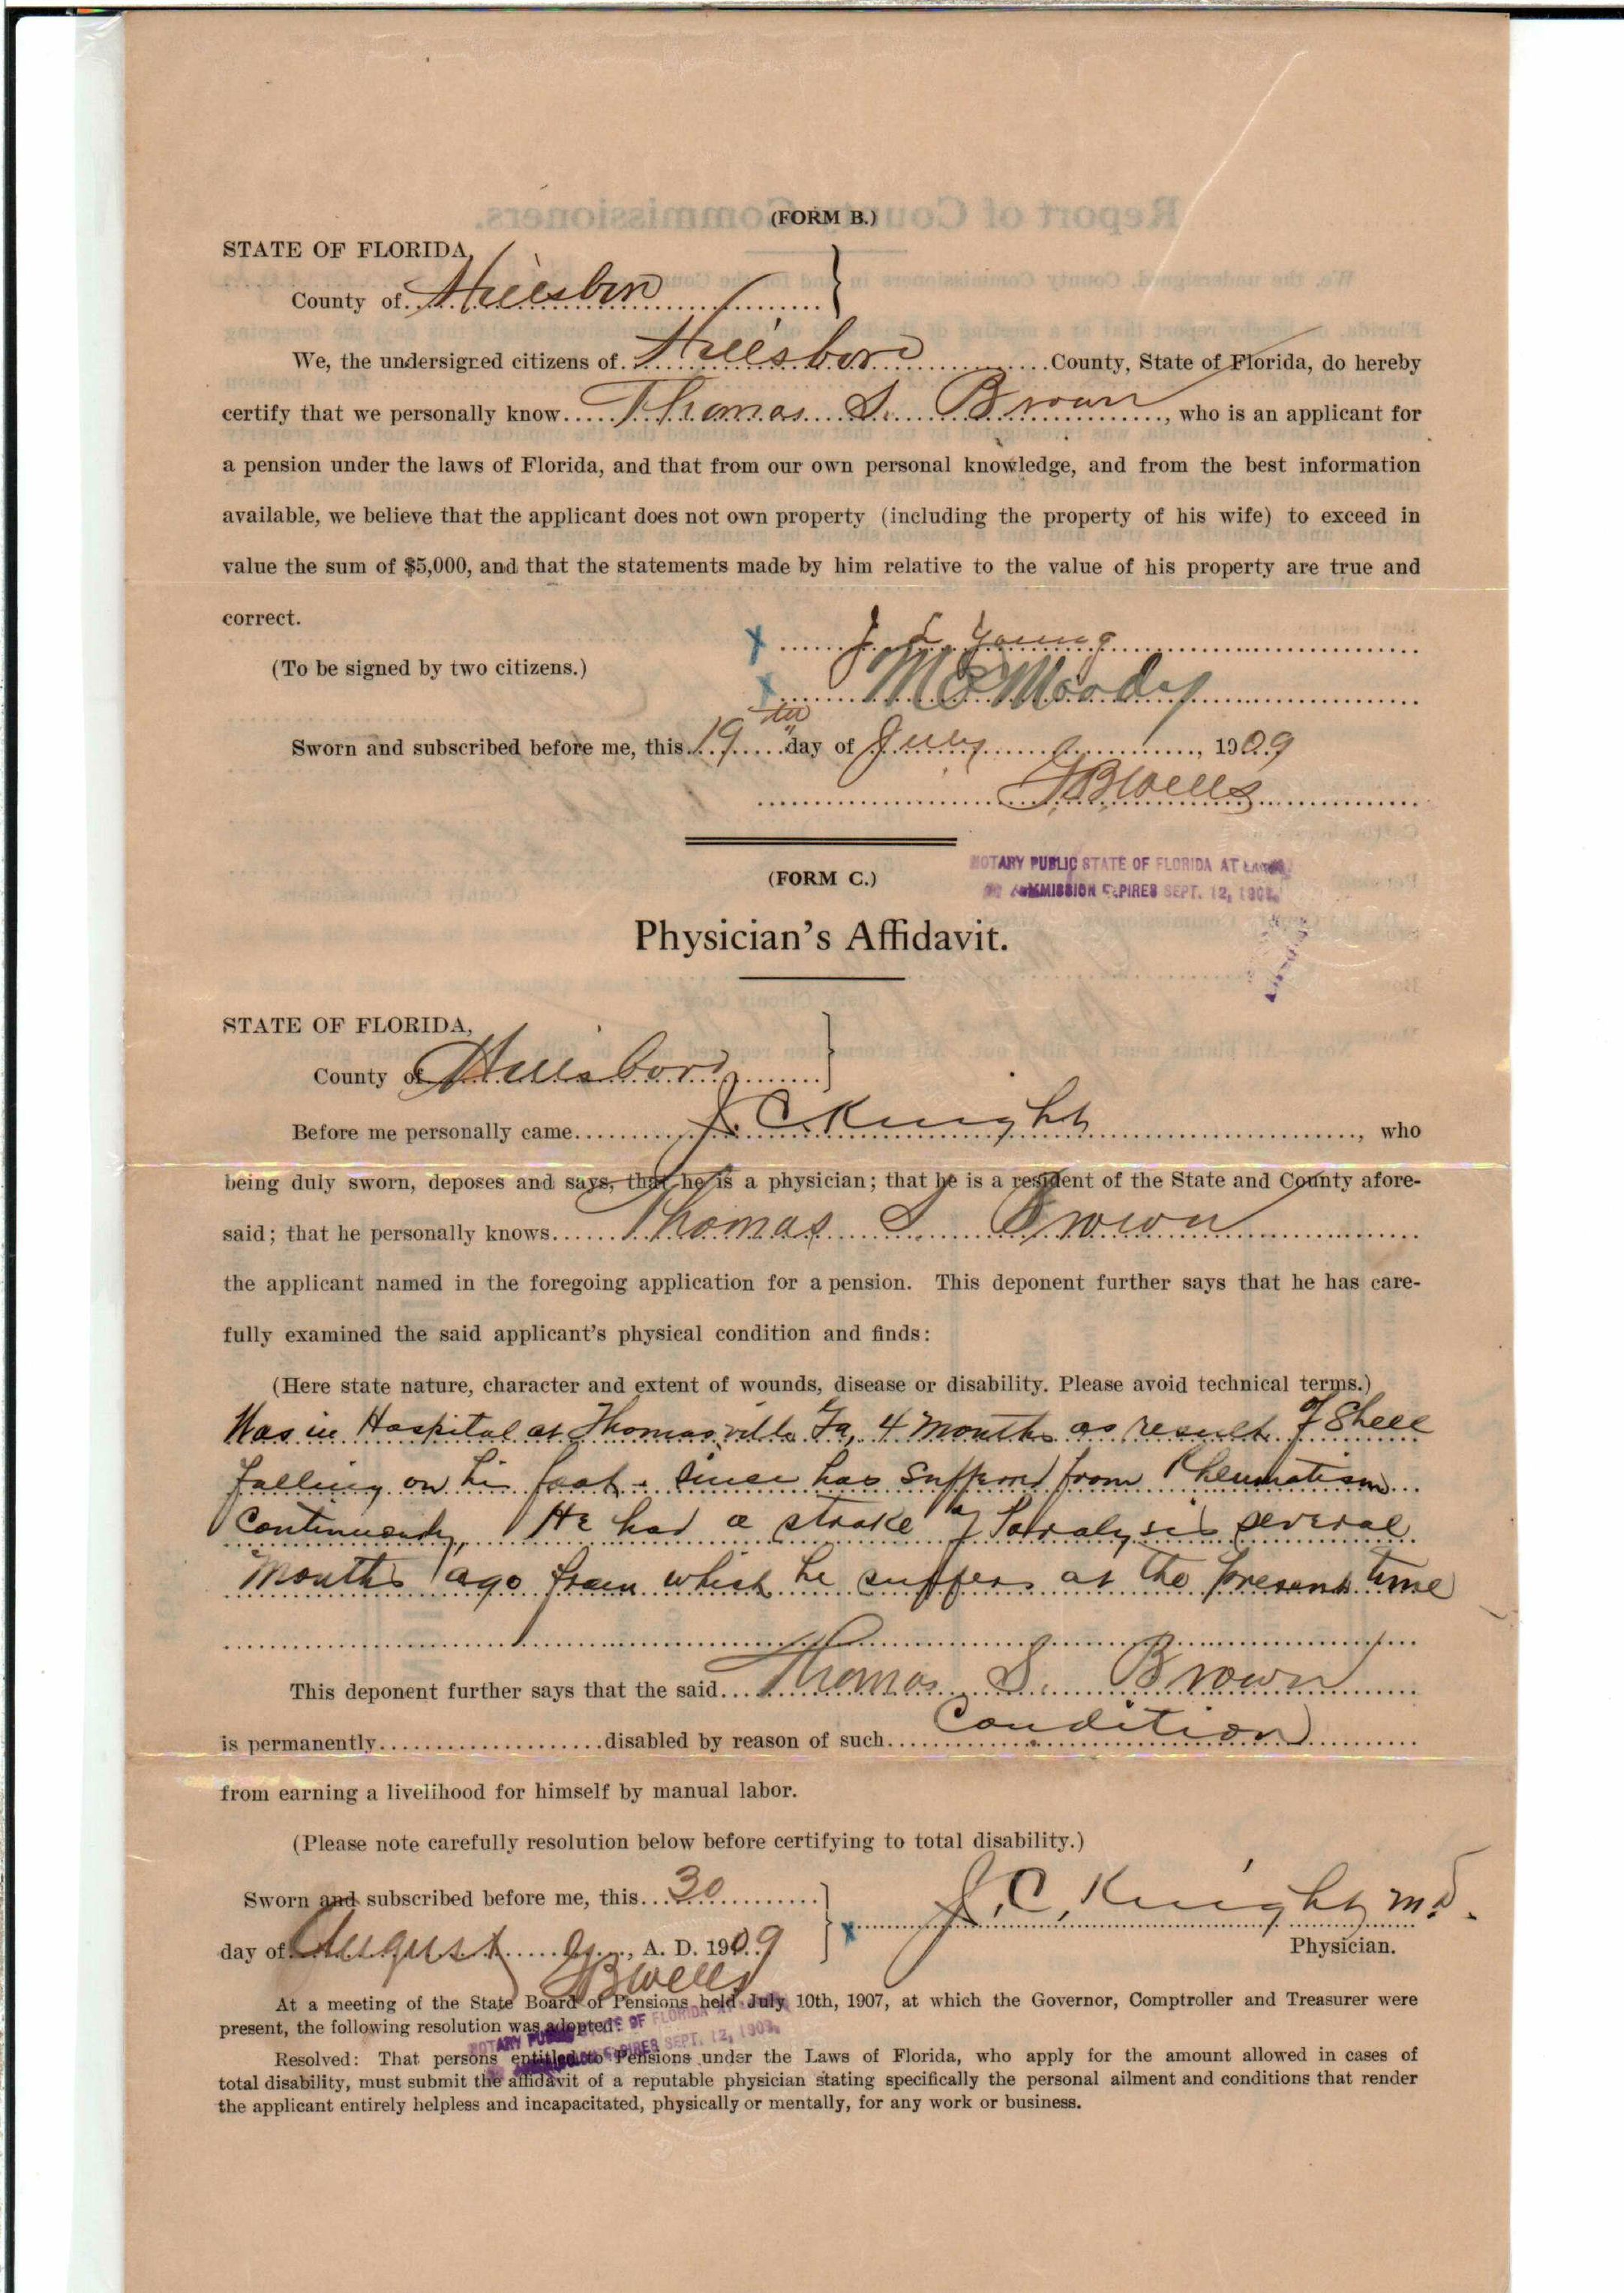 (FORM B.)
STATE OF FLORIDA,
County of Hillsboro
We, the undersigned citizens of Hillsboro County, State of Florida, do hereby
certify that we personally know Thomas S. Brown, who is an applicant for
a pension under the laws of Florida, and that from our own personal knowledge, and from the best information
available, we believe that the applicant does not own property (including the property of his wife) to exceed in
value the sum of $5,000, and that the statements made by him relative to the value of his property are true and
correct.
x Young
(To be signed by two citizens.)
x Moody
Sworn and subscribed before me, this 19th day of July, 1909
Wells
NOTARY PUBLIC STATE OF FLORIDA AT LARGE
COMMISSION EXPIRES SEPT. 12,
(FORM C.)
Physician's Affidavit.
STATE OF FLORIDA,
County of Hillsboro
Before me personally came J. C. Knight, who
being duly sworn, deposes and says, that he is a physician; that he is a resident of the State and County afore-
said; that he personally knows Thomas S Brown
the applicant named in the foregoing application for a pension. This deponent further says that he has care-
fully examined the said applicant's physical condition and finds:
(Here state nature, character and extent of wounds, disease or disability. Please avoid technical terms.)
Was in Hospital at Thomasville Ga, 4 months as result of Shell
falling on his foot. Since has suffered from Rheumatism
Continuously, He had a stroke of Paralysis several
Months ago from which he suffers at the present time
This deponent further says that the said Thomas S. Brown
is permanently disabled by reason of such Condition
from earning a livelihood for himself by manual labor.
(Please note carefully resolution below before certifying to total disability.)
Sworn and subscribed before me, this 30
x J. C. Knight M.D.
day of August, A. D. 1909
Physician.
Wells
At a meeting of the State Board of Pensions held July 10th, 1907, at which the Governor, Comptroller and Treasurer were
present, the following resolution was adopted:
NOTARY PUBLIC STATE OF FLORIDA
EXPIRES SEPT. 12,
Resolved: That persons entitled to Pensions under the Laws of Florida, who apply for the amount allowed in cases of
total disability, must submit the affidavit of a reputable physician stating specifically the personal ailment and conditions that render
the applicant entirely helpless and incapacitated, physically or mentally, for any work or business.